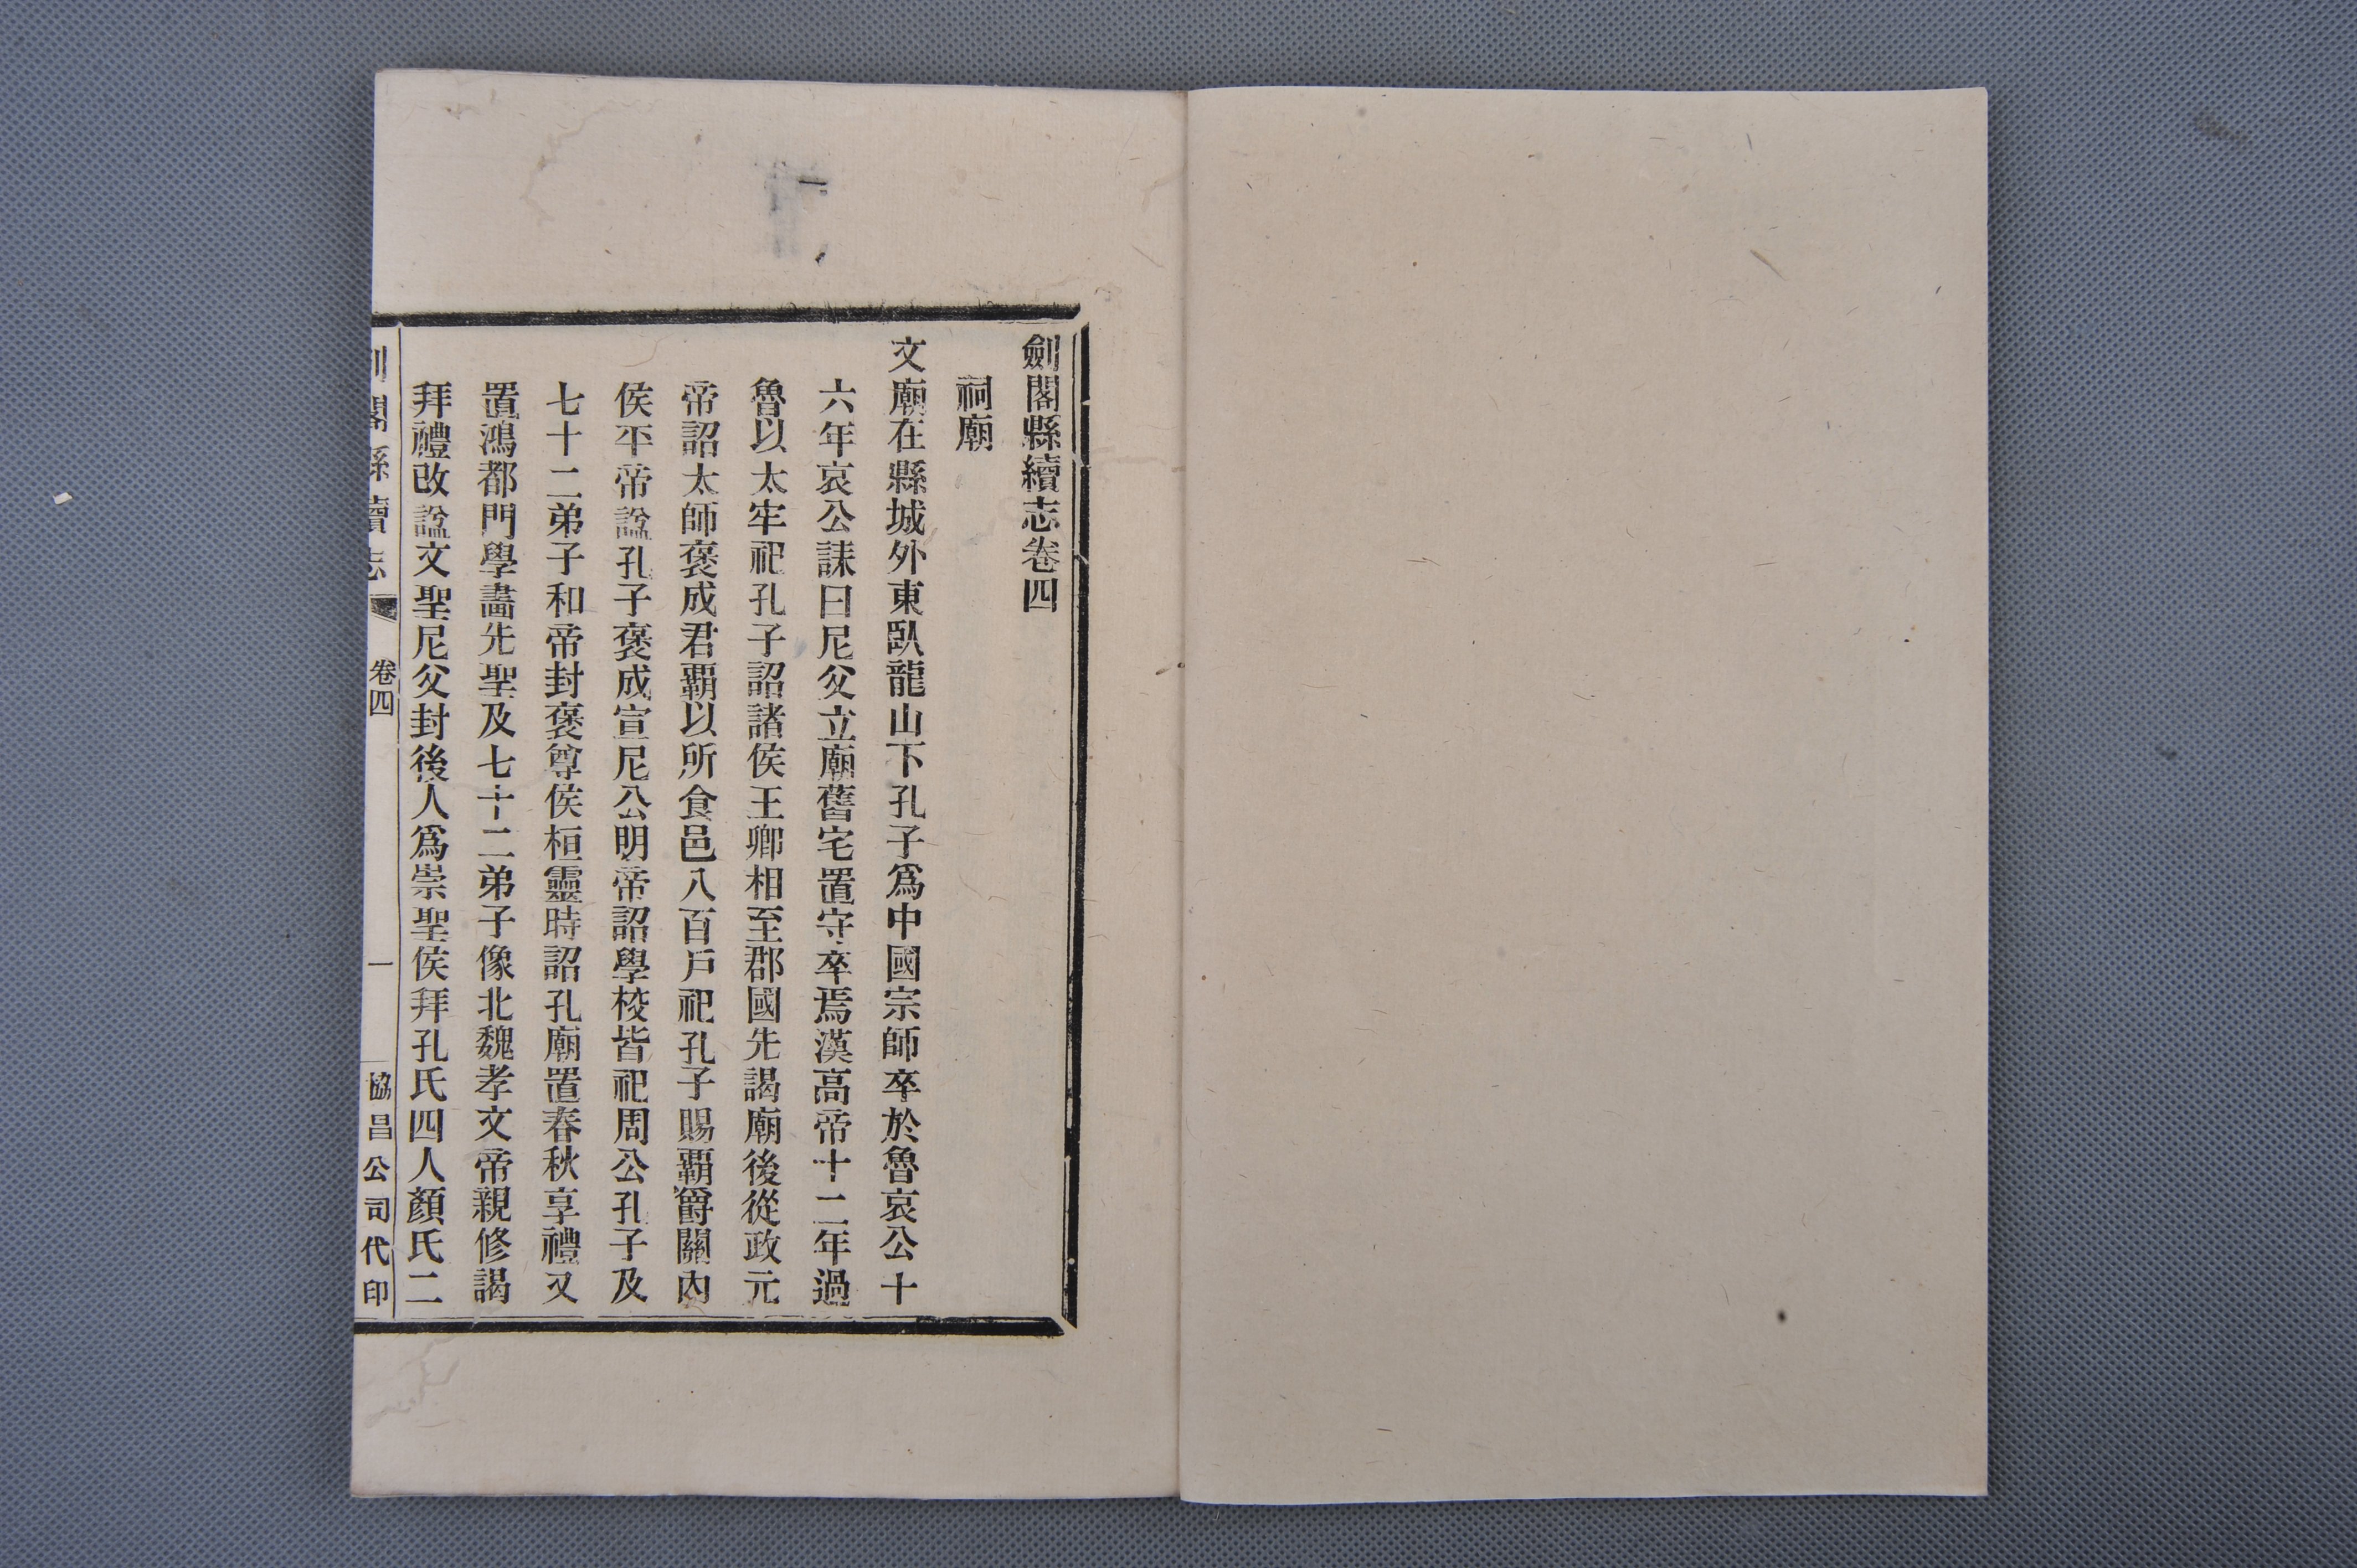 劍閣縣續志卷四
祠廟
文廟在縣城外東臥龍山下孔子爲中國宗師卒於魯哀公十
六年哀公誄曰尼父立廟舊宅置守卒焉漢高帝十二年過
魯以太牢祀孔子詔諸侯王卿相至郡國先謁廟後從政元
帝詔太師褒成君霸以所食邑八百戶祀孔子賜霸爵關內
侯平帝諡孔子褒成宣尼公明帝詔學校皆祀周公孔子及
七十二弟子和帝封褒尊侯桓靈時詔孔廟置春秋享禮又
置鴻都門學畫先聖及七十二弟子像北魏孝文帝親修謁
拜禮改諡文聖尼父封後人爲崇聖侯拜孔氏四人顏氏二
劍閣縣續志 卷四 一 協昌公司代印